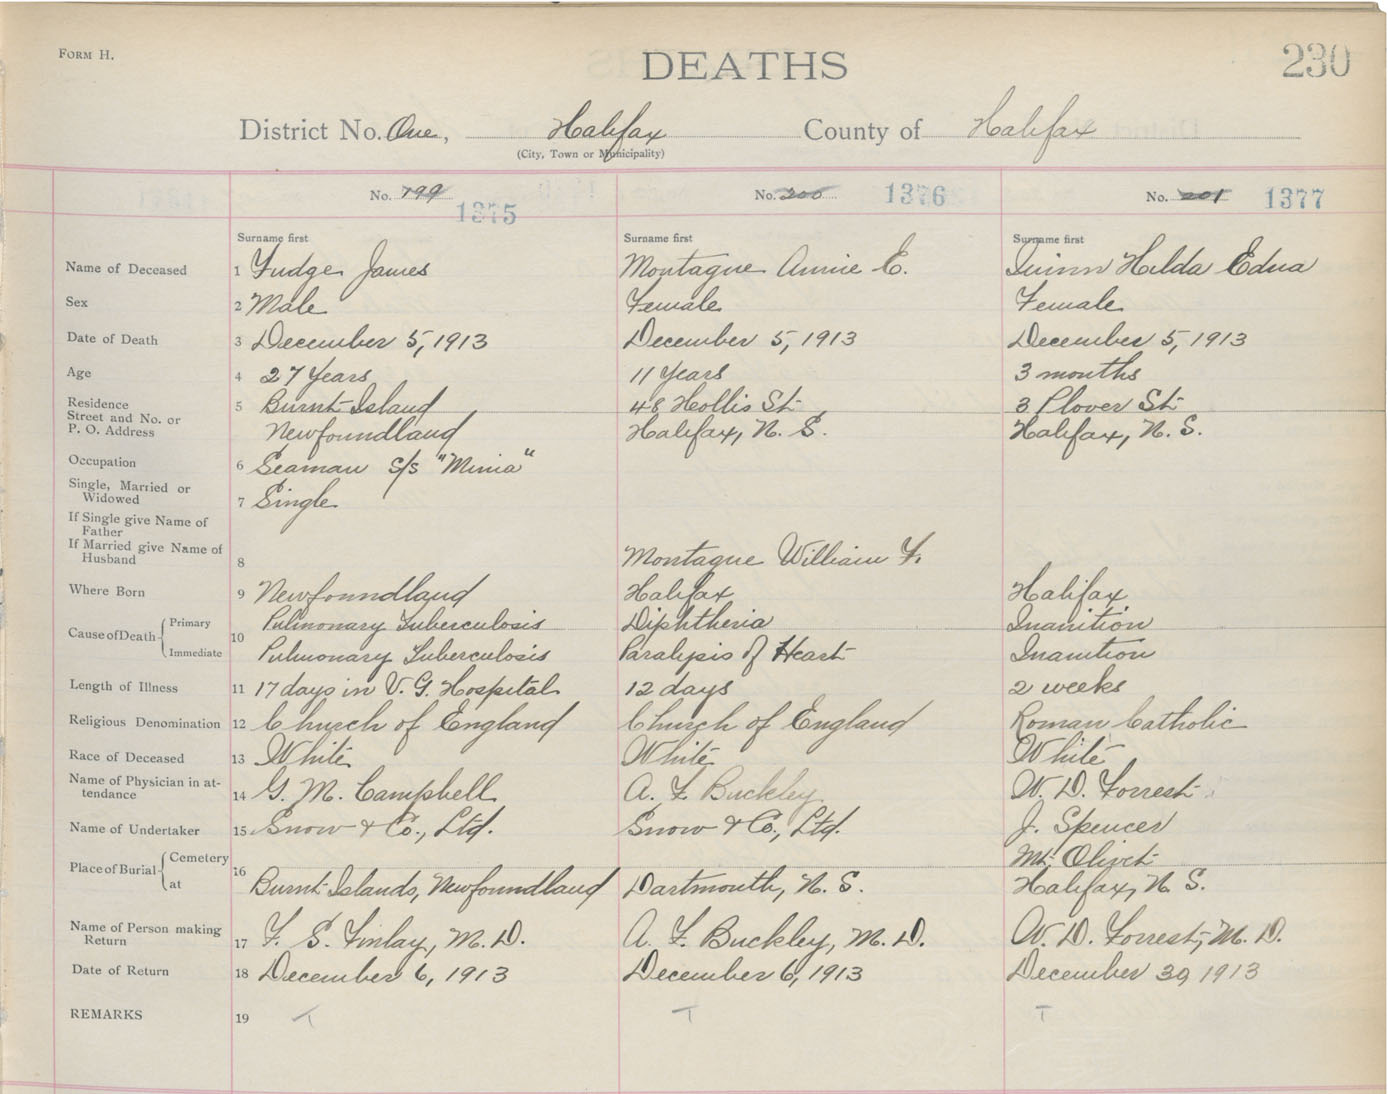 FORM H.
DEATHS
230
District No. One, Halifax County of Halifax
(City, Town or Municipality)
No. 799 No. 200 No. 201
1375 1376 1377
Surname first Surname first Surname first
Name of Deceased 1 Fudge James Montague Annie E. Quinn Hilda Edna
Sex 2 Male Female Female
Date of Death 3 December 5, 1913 December 5, 1913 December 5, 1913
Age 4 27 Years 11 Years 3 months
Residence 5 Burnt Island 48 Hollis St. 3 Plover St.
Street and No. or
P. O. Address Newfoundland Halifax, N. S. Halifax, N. S.
Occupation 6 Seaman s/s "Minia"
Single, Married or
Widowed 7 Single
If Single give Name of
Father
If Married give Name of
Husband 8 Montague William F.
Where Born 9 Newfoundland Halifax Halifax
Cause of Death 10 Primary Pulmonary Tuberculosis Diphtheria Inanition
Immediate Pulmonary Tuberculosis Paralysis of Heart Inanition
Length of Illness 11 17 days in V. G. Hospital 12 days 2 weeks
Religious Denomination 12 Church of England Church of England Roman Catholic
Race of Deceased 13 White White White
Name of Physician in at-
tendance 14 G. M. Campbell A. F. Buckley W. D. Forrest
Name of Undertaker 15 Snow & Co., Ltd. Snow & Co., Ltd. J. Spencer
Place of Burial 16 Cemetery Mt. Olivet
at Burnt Islands, Newfoundland Dartmouth, N. S. Halifax, N. S.
Name of Person making
Return 17 F. S. Finlay, M. D. A. F. Buckley, M. D. W. D. Forrest, M. D.
Date of Return 18 December 6, 1913 December 6, 1913 December 30, 1913
REMARKS 19 T T T